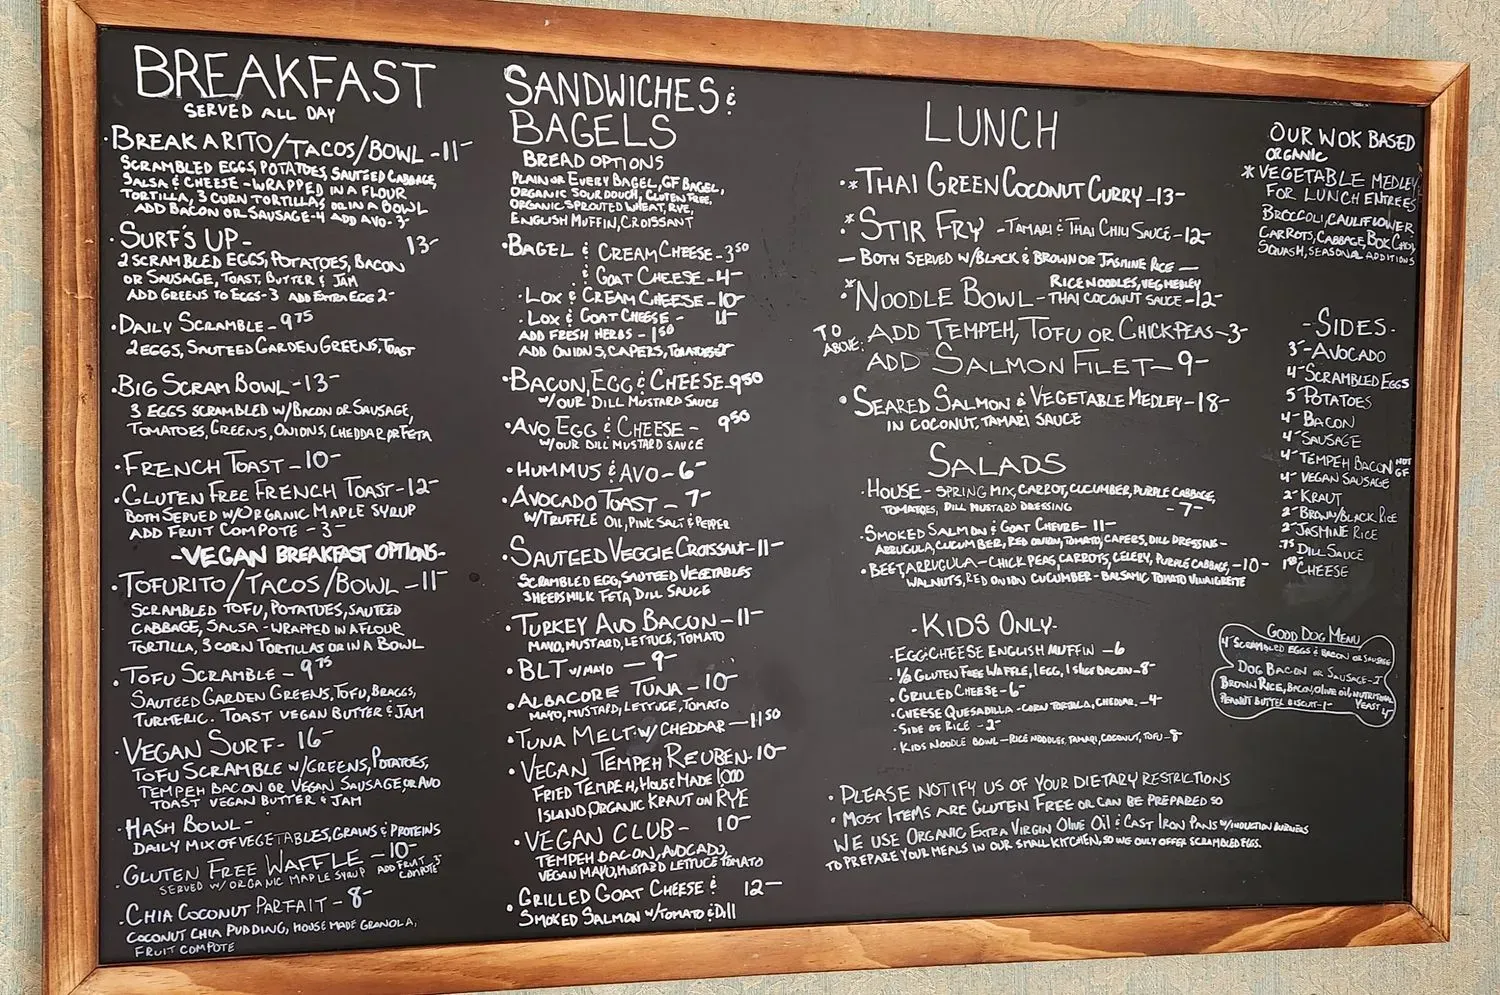 BREAKFAST
SERVED ALL DAY
·BREAKARITO/TACOS/BOWL -11-
SCRAMBLED EGGS, POTATOES, SAUTEED CABBAGE,
SALSA & CHEESE - WRAPPED IN A FLOUR
TORTILLA, 3 CORN TORTILLAS OR IN A BOWL
ADD BACON OR SAUSAGE-4 ADD AVO-3-
·SURF'S UP- 13-
2 SCRAMBLED EGGS, POTATOES, BACON
OR SAUSAGE, TOAST, BUTTER & JAM
ADD GREENS TO EGGS-3 ADD EXTRA EGG 2-
·DAILY SCRAMBLE - 9 75
2 EGGS, SAUTEED GARDEN GREENS, TOAST
·BIG SCRAM BOWL -13-
3 EGGS SCRAMBLED W/BACON OR SAUSAGE,
TOMATOES, GREENS, ONIONS, CHEDDAR OR FETA
·FRENCH TOAST -10-
·GLUTEN FREE FRENCH TOAST-12-
BOTH SERVED W/ORGANIC MAPLE SYRUP
ADD FRUIT COMPOTE -3-
-VEGAN BREAKFAST OPTIONS-
·TOFURITO/TACOS/BOWL -11-
SCRAMBLED TOFU, POTATOES, SAUTEED
CABBAGE, SALSA - WRAPPED IN A FLOUR
TORTILLA, 3 CORN TORTILLAS OR IN A BOWL
·TOFU SCRAMBLE - 9 75
SAUTEED GARDEN GREENS, TOFU, BRAGGS,
TURMERIC. TOAST VEGAN BUTTER & JAM
·VEGAN SURF- 16-
TOFU SCRAMBLE W/GREENS, POTATOES,
TEMPEH BACON OR VEGAN SAUSAGE, OR AVO
TOAST VEGAN BUTTER & JAM
·HASH BOWL-
DAILY MIX OF VEGETABLES, GRAINS & PROTEINS
·GLUTEN FREE WAFFLE -10-
SERVED W/ORGANIC MAPLE SYRUP ADD FRUIT COMPOTE 3
·CHIA COCONUT PARFAIT - 8-
COCONUT CHIA PUDDING, HOUSE MADE GRANOLA,
FRUIT COMPOTE
SANDWICHES &
BAGELS
BREAD OPTIONS
PLAIN OR EVERY BAGEL, GF BAGEL,
ORGANIC SOURDOUGH, GLUTEN FREE,
ORGANIC SPROUTED WHEAT, RYE,
ENGLISH MUFFIN, CROISSANT
·BAGEL & CREAM CHEESE-3 50
& GOAT CHEESE -4-
·LOX & CREAM CHEESE-10-
·LOX & GOAT CHEESE - 11-
ADD FRESH HERBS - 1 50
ADD ONIONS, CAPERS, TOMATOES 2-
·BACON, EGG & CHEESE-9 50
W/OUR DILL MUSTARD SAUCE
·AVO EGG & CHEESE - 9 50
W/OUR DILL MUSTARD SAUCE
·HUMMUS & AVO - 6-
·AVOCADO TOAST - 7-
W/TRUFFLE OIL, PINK SALT & PEPPER
·SAUTEED VEGGIE CROISSANT-11-
SCRAMBLED EGG, SAUTEED VEGETABLES
SHEEPSMILK FETA, DILL SAUCE
·TURKEY AVO BACON -11-
MAYO, MUSTARD, LETTUCE, TOMATO
·BLT W/MAYO - 9-
·ALBACORE TUNA -10-
MAYO, MUSTARD, LETTUCE, TOMATO
·TUNA MELT W/CHEDDAR -11 50
·VEGAN TEMPEH REUBEN-10-
FRIED TEMPEH, HOUSE MADE 1000
ISLAND, ORGANIC KRAUT ON RYE
·VEGAN CLUB- 10-
TEMPEH BACON, AVOCADO,
VEGAN MAYO, MUSTARD LETTUCE TOMATO
·GRILLED GOAT CHEESE & 12-
SMOKED SALMON W/TOMATO & DILL
LUNCH
·*THAI GREEN COCONUT CURRY -13-
·*STIR FRY -TAMARI & THAI CHILI SAUCE-12-
- BOTH SERVED W/BLACK & BROWN OR JASMINE RICE -
·*NOODLE BOWL - RICE NOODLES, VEG MEDLEY
THAI COCONUT SAUCE -12-
TO ABOVE: ADD TEMPEH, TOFU OR CHICKPEAS-3-
ADD SALMON FILET- 9-
·SEARED SALMON & VEGETABLE MEDLEY-18-
IN COCONUT, TAMARI SAUCE
SALADS
·HOUSE - SPRING MIX, CARROT, CUCUMBER, PURPLE CABBAGE,
TOMATOES, DILL MUSTARD DRESSING -7-
·SMOKED SALMON & GOAT CHEVRE- 11-
ARRUGULA, CUCUMBER, RED ONION, TOMATO, CAPERS, DILL DRESSING-
·BEET ARRUGULA - CHICK PEAS, CARROTS, CELERY, PURPLE CABBAGE, -10-
WALNUTS, RED ONION CUCUMBER - BALSAMIC TOMATO VINAIGRETTE
-KIDS ONLY-
·EGG & CHEESE ENGLISH MUFFIN -6
·1/2 GLUTEN FREE WAFFLE, 1 EGG, 1 SLICE BACON-8-
·GRILLED CHEESE-6-
·CHEESE QUESADILLA -CORN TORTILLA, CHEDDAR. -4-
·SIDE OF RICE -2-
·KIDS NOODLE BOWL - RICE NOODLES, TAMARI, COCONUT, TOFU-8-
·PLEASE NOTIFY US OF YOUR DIETARY RESTRICTIONS
·MOST ITEMS ARE GLUTEN FREE OR CAN BE PREPARED SO
WE USE ORGANIC EXTRA VIRGIN OLIVE OIL & CAST IRON PANS W/INDUCTION BURNERS
TO PREPARE YOUR MEALS IN OUR SMALL KITCHEN, SO WE ONLY OFFER SCRAMBLED EGGS.
OUR WOK BASED
ORGANIC
*VEGETABLE MEDLEY
FOR LUNCH ENTREES
BROCCOLI, CAULIFLOWER
CARROTS, CABBAGE, BOK CHOY,
SQUASH, SEASONAL ADDITIONS
-SIDES-
3-AVOCADO
4-SCRAMBLED EGGS
5-POTATOES
4-BACON
4-SAUSAGE
4-TEMPEH BACON NOT GF
4-VEGAN SAUSAGE
2-KRAUT
2-BROWN/BLACK RICE
2-JASMINE RICE
.75 DILL SAUCE
1 50 CHEESE
GOOD DOG MENU
4-SCRAMBLED EGGS & BACON OR SAUSAGE
DOG BACON OR SAUSAGE-2-
BROWN RICE, BACON, OLIVE OIL, NUTRITIONAL YEAST
PEANUT BUTTER BISCUIT-1-